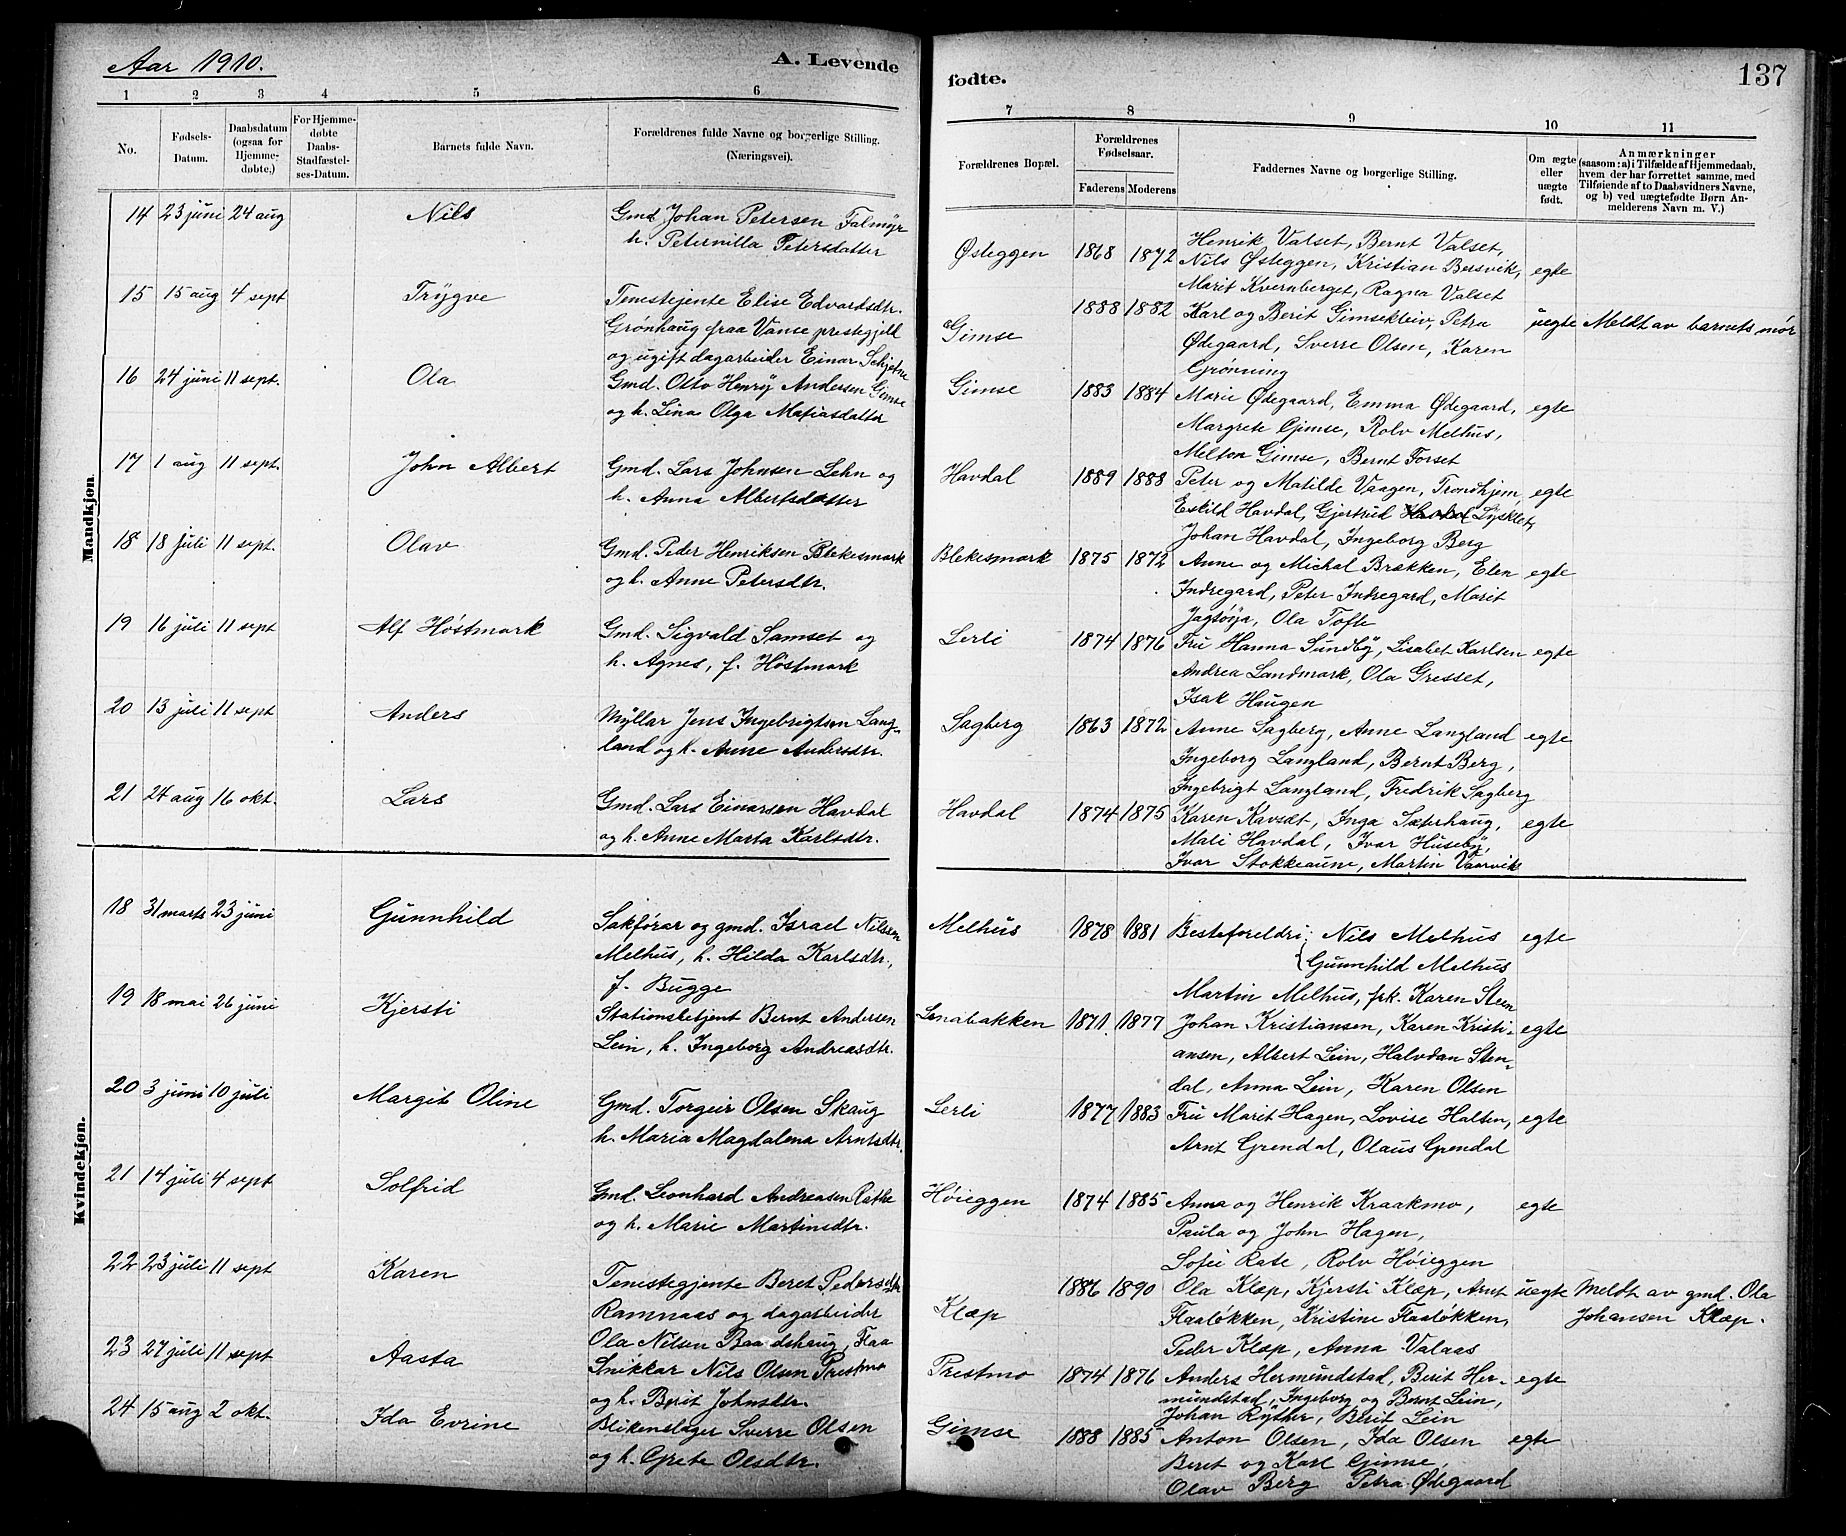 Aar 1910.
A. Levende
fødte.
137
1 2 3 4 5 6
7 8 9 10 11
No.
Fødsels-
Datum.
Daabsdatum
(ogsaa for
Hjemme-
døbte,)
For Hjemme-
døbte
Daabs-
Stadfæstel-
ses-Datum.
Barnets fulde Navn.
Forældrenes fulde Navne og borgerlige Stilling.
(Næringsvei).
Forældrenes Bopæl.
Forældrenes
Fødselsaar.
Faderens Moderens
Faddernes Navne og borgerlige Stilling.
Om ægte
eller
uægte
født.
Anmærkninger
(saasom: a) i Tilfælde af Hjemmedaab,
hvem der har forrettet samme, med
Tilføiende af to Daabsvidners Navne,
og b) ved uægtefødte Børn An-
melderens Navn m. V.)
Mandkjøn.
14 23 juni 24 aug Nils
Gmd Johan Petersen Falmyr
h. Peternilla Petersdatter
Østeggen 1868 1872
Henrik Valset, Bernt Valset,
Nils Østeggen, Kristian Bersvik, egte
Marit Kvernberget, Ragna Valset
15 15 aug 4 sept Trygve
Tenestejente Elise Edvardsdtr.
Grønhaug fraa Vanse prestegjell
og ugift dagarbeider Einar Schjetne
Gimse 1888 1882
Karl og Berit Gimsekleiv, Petra uegte Meldt av barnets mor
Ødegaard, Sverre Olsen, Karen
Grønning
16 24 juni 11 sept. Ola
Gmd. Otto Henry Andersen Gimse
og h. Lina Olga Matiasdatter
Gimse 1883 1884
Marie Ødegaard, Emma Ødegaard, egte
Margrete Gimse, Rolv Melhus,
Melton Gimse, Bernt Forset
17 1 aug 11 sept. John Albert
Gmd. Lars Johnsen Lehn og
h. Anna Albertsdatter
Havdal 1889 1888
Peter og Matilde Vaagen, Trondhjem, egte
Eskild Havdal, Gjertrud Lysklet,
Johan Havdal, Ingeborg Berg
18 18 juli 11 sept. Olav
Gmd. Peder Henriksen Blekesmark
og h. Anne Petersdtr.
Blekesmark 1875 1872
Anne og Michal Brækken, Elen egte
Indregard, Peter Indregard, Marit
Jagtøya, Ola Tofte
19 16 juli 11 sept Alf Høstmark
Gmd. Sigvald Samset og
h. Agnes, f. Høstmark
Lerli 1874 1876
Fru Hanna Sundby, Lisabet Karlsen egte
Andrea Landmark, Ola Gresset,
Isak Haugen
20 13 juli 11 sept Anders
Myllar Jens Ingebrigtsen Lang-
land og h. Anne Andersdtr.
Sagberg 1863 1872
Anne Sagberg, Anne Langland egte
Ingeborg Langland, Bernt Berg,
Ingebrigt Langland, Fredrik Sagberg
21 24 aug 16 okt. Lars
Gmd. Lars Einarsen Havdal
og h. Anne Marta Karlsdtr.
Havdal 1874 1875
Karen Kavsæt, Inga Sæterhaug, egte
Mali Havdal, Ivar Huseby,
Ivar Stokkeaune, Martin Vaarvik
Kvindekjøn.
18 31 marts 23 juni Gunnhild
Sakførar og gmd. Israel Nilssen
Melhus, h. Hilda Karlsdtr.,
f. Bugge
Melhus 1878 1881
Besteforeldri: Nils Melhus egte
Gunnhild Melhus
Martin Melhus, frk. Karen Steen
19 18 mai 26 juni Kjersti
Stationsbetjent Bernt Andersen
Lein, h. Ingeborg Andreasdtr.
Lenabakken 1871 1877
Johan Kristiansen, Karen Kristi- egte
ansen, Albert Lein, Halvdan Sten-
dal, Anna Lein, Karen Olsen
20 3 juni 10 juli Margit Oline
Gmd. Torgeir Olsen Skaug
h. Maria Magdalena Arntsdtr.
Lerli 1877 1883
Fru Marit Hagen, Lovise Halten, egte
Arnt Grendal, Olaus Grendal
21 14 juli 4 sept Solfrid
Gmd. Leonhard Andreasen Rathe
og h. Marie Martinsdtr.
Høieggen 1874 1885
Anna og Henrik Kraakmo, egte
Paula og John Hagen,
Sofie Rate, Rolv Høieggen
22 23 juli 11 sept Karen
Tenestegjente Beret Pedersdtr
Ramnaas og dagarbeider
Ola Nilsen Baardshaug, Flaa
Klæp 1886 1890
Ola Klæp, Kjersti Klæp, Arnt uegte Meldt av gmd. Ola
Flaaløkken, Kristine Flaaløkken, Johansen Klæp.
Peder Klæp, Anna Valaas
23 27 juli 11 sept Aasta
Snikkar Nils Olsen Prestmo
og h. Berit Johnsdtr.
Prestmo 1874 1876
Anders Hermundstad, Berit Her- egte
mundstad, Ingeborg og Bernt Lein,
Johan Ryther, Berit Lein
24 15 aug 2 okt. Ida Evrine
Blikenslager Sverre Olsen
og h. Grete Olsdtr.
Gimse 1888 1885
Anton Olsen, Ida Olsen egte
Beret og Karl Gimse,
Olav Berg Petra Ødegaard